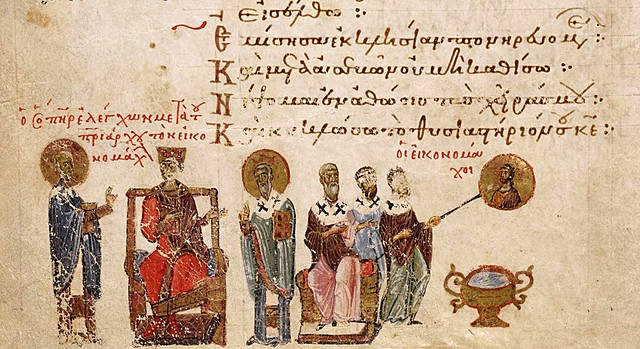 εἰσέλθω :·
Ἐμίσησα ἐκκλησίαν πονηρευομε :·
Καὶ μετὰ ἀσεβῶν οὐ μὴ καθίσω :·
Νίψομαι ἐν ἀθώοις τὰς χεῖράς μου :·
Καὶ κυκλώσω τὸ θυσιαστήριόν σου κε :·
ἐλέγχων μετὰ τοῦ
πριάρχ τὸν εἰκο
νομάχ
οἱ εἰκονομά
χοι